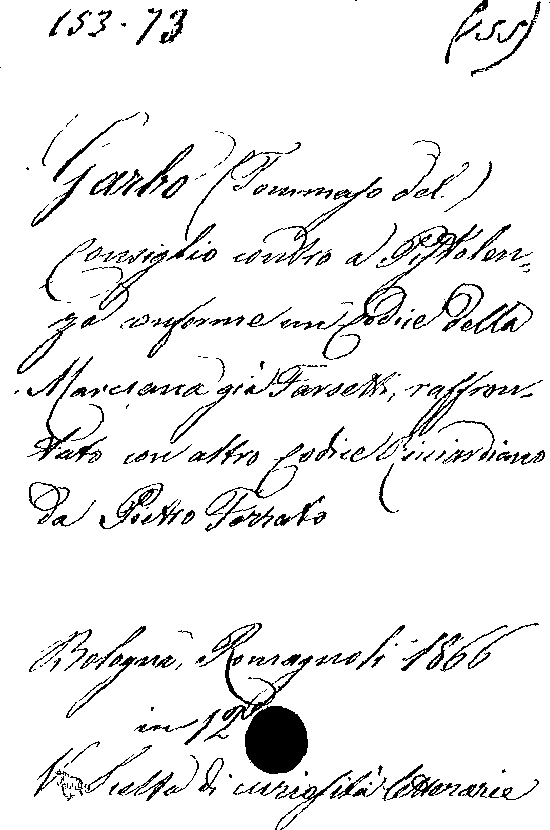 153-73 (155)
Garbo (Tommaso del)
Consiglio contro a Pistolen-
za conforme un Codice della
Marciana già Farsetti, raffron-
tato con altro Codice Ricciardiano
da Pietro Ferrato
Bologna, Romagnoli 1866
in 12º
V. Scelta di curiosità letterarie